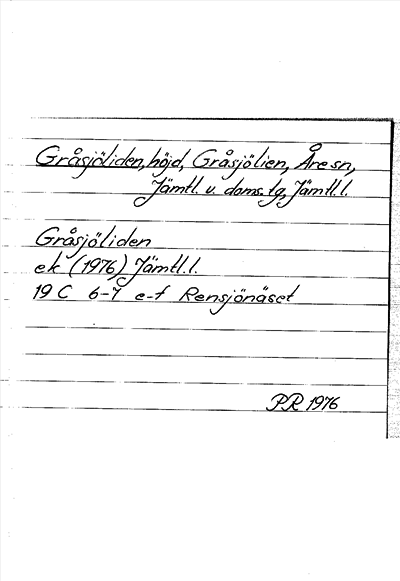 Gråsjöliden, höjd, Gråsjölien, Åre sn,
Jämtl. v. doms. tg, Jämtl. l.
Gråsjöliden
ek (1976) Jämtl. l.
19 C 6-7 e-f Rensjönäset
PR 1976